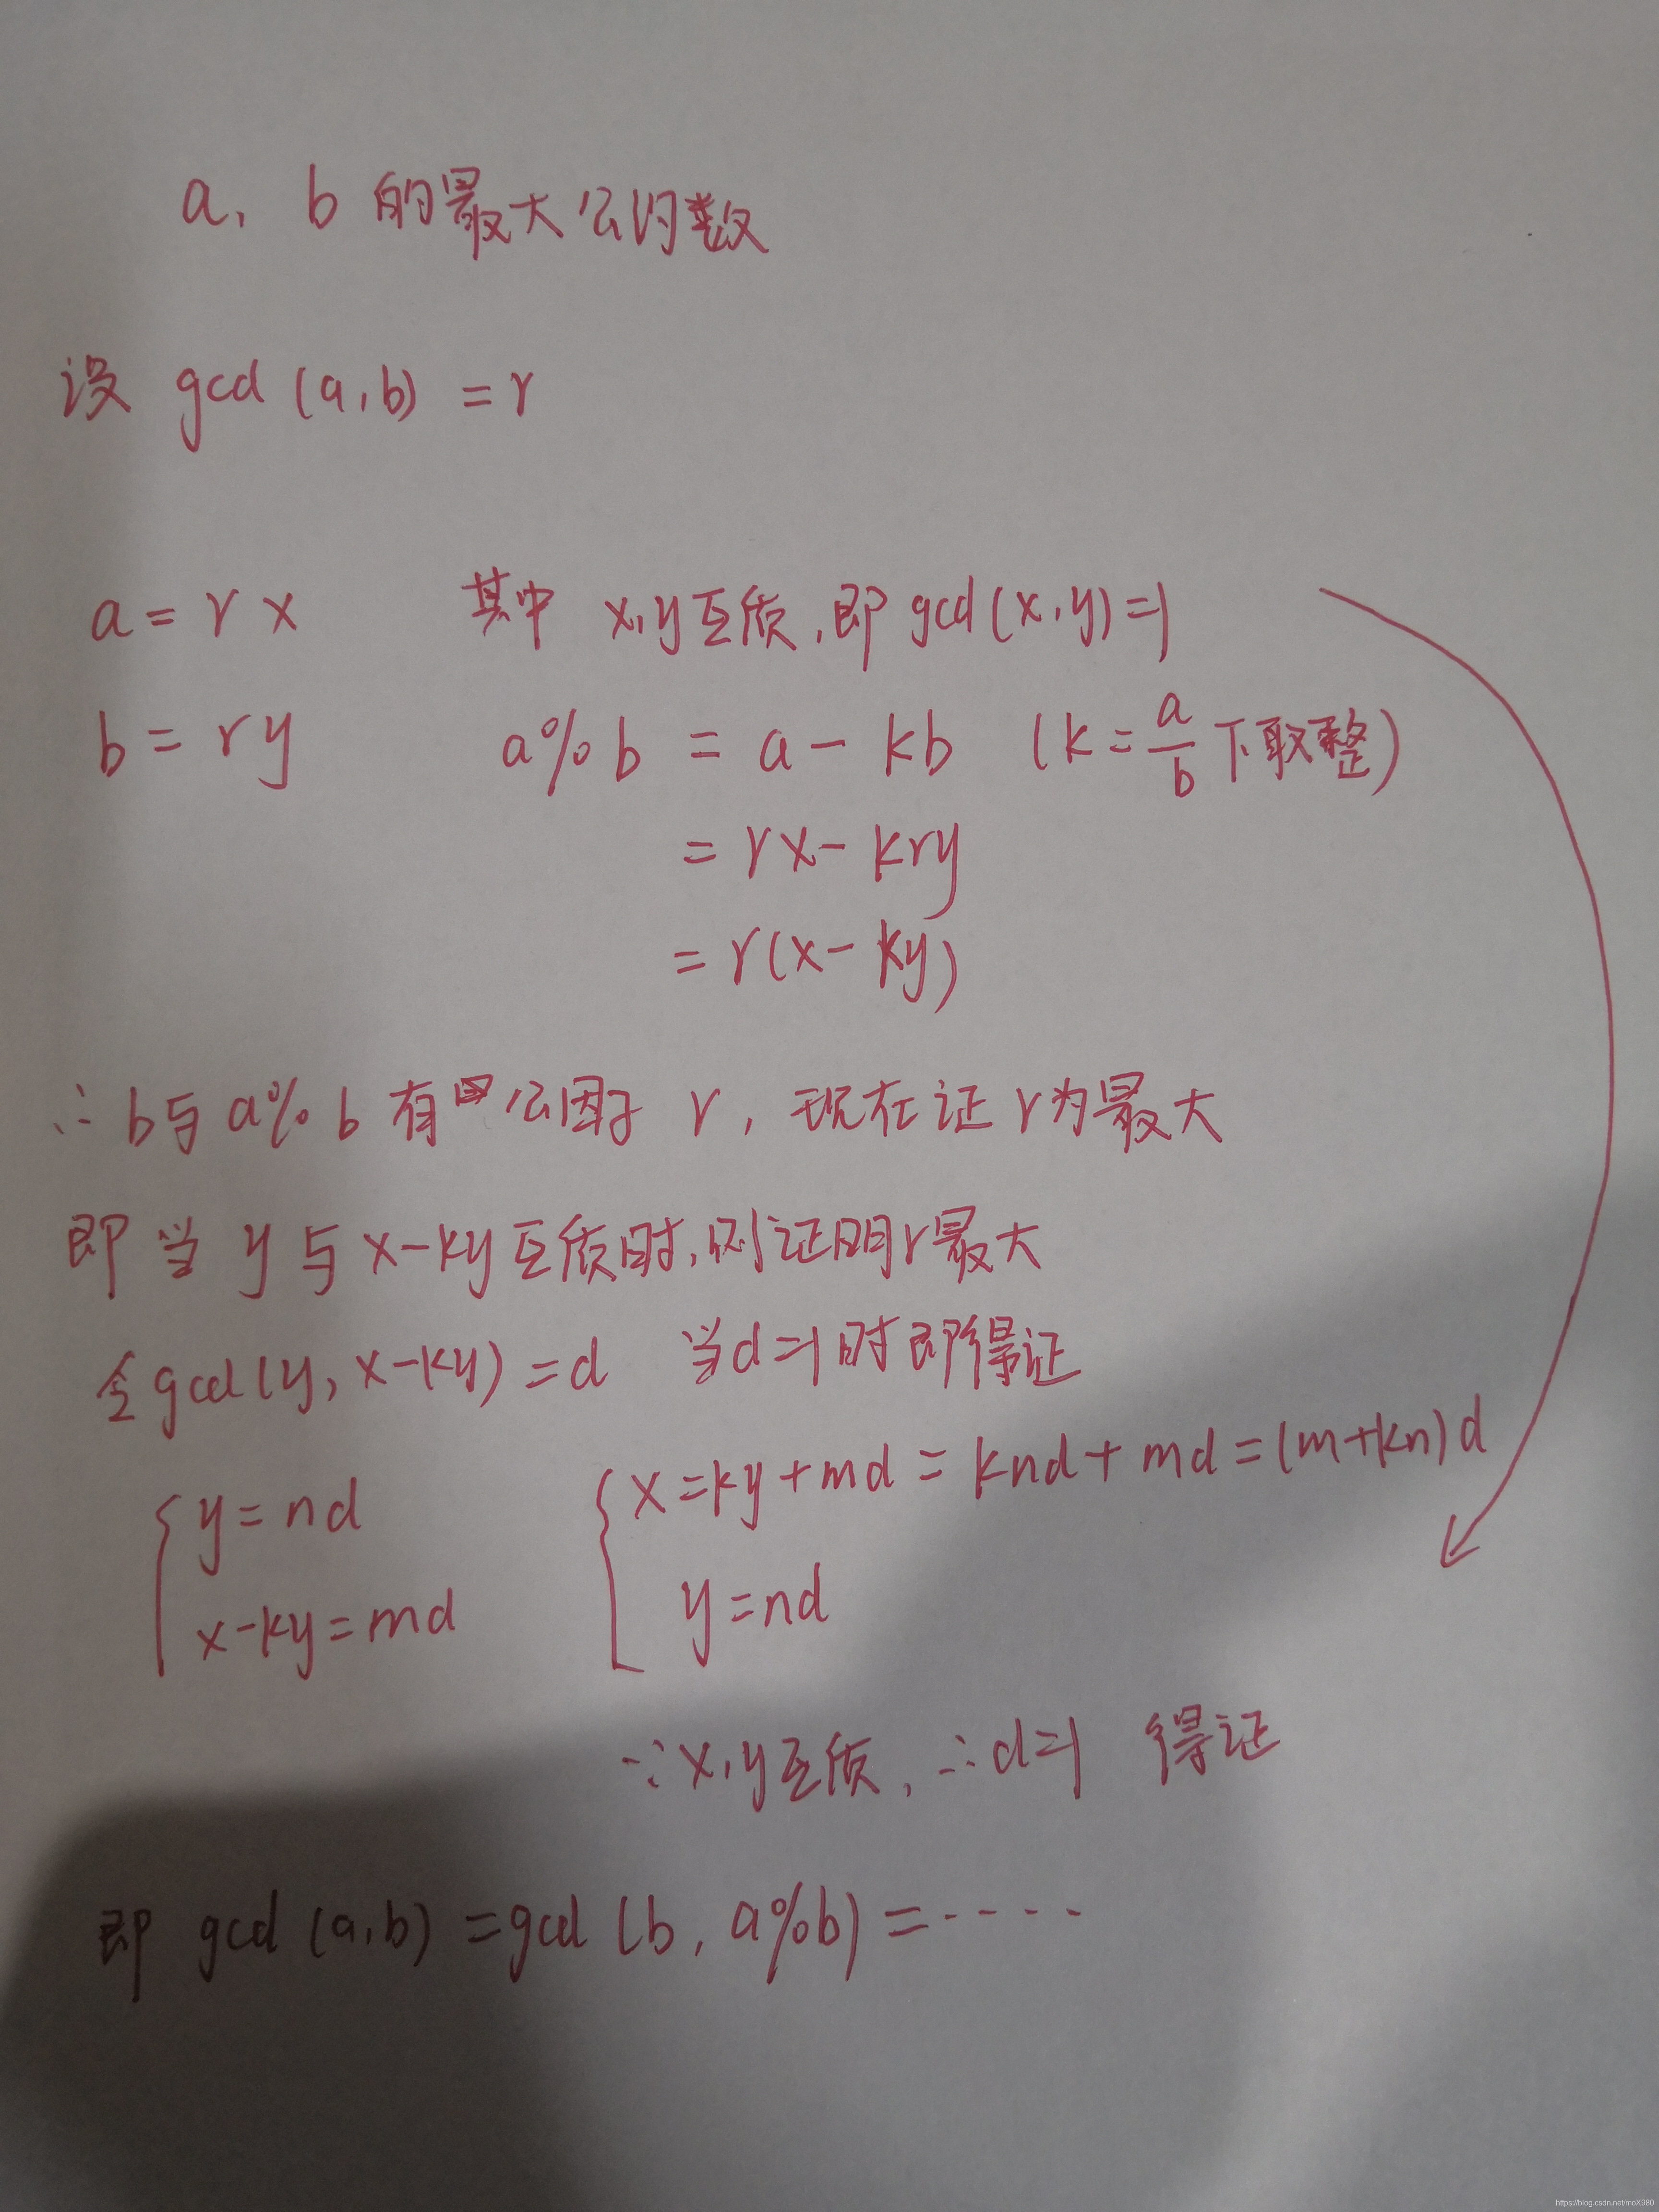 a, b 的最大公约数
设 gcd (a,b) = r
a = r x 其中 x,y互质,即 gcd(x,y)=1
b = ry a%b = a - kb (k = a/b 下取整)
= rx - kry
= r(x - ky)
∴ b与 a%b 有公因子 r, 现在证 r为最大
即当 y 与 x-ky 互质时,则证明r最大
令gcd(y, x-ky) = d 当d=1时即得证
{ y = nd { x = ky + md = knd + md = (m+kn)d
x-ky = md y = nd
∵ x,y互质, ∴ d=1 得证
即 gcd (a,b) = gcd (b, a%b) = -----
https://blog.csdn.net/moX980